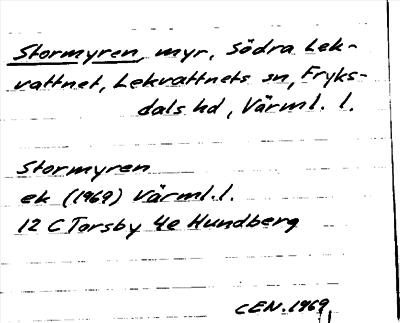 Stormyren, myr, Södra Lek-
vattnet, Lekvattnets sn, Fryks-
dals hd, Värml. l.
Stormyren
ek (1969) Värml. l.
12 C Torsby 4e Hundberg
CEN. 1969